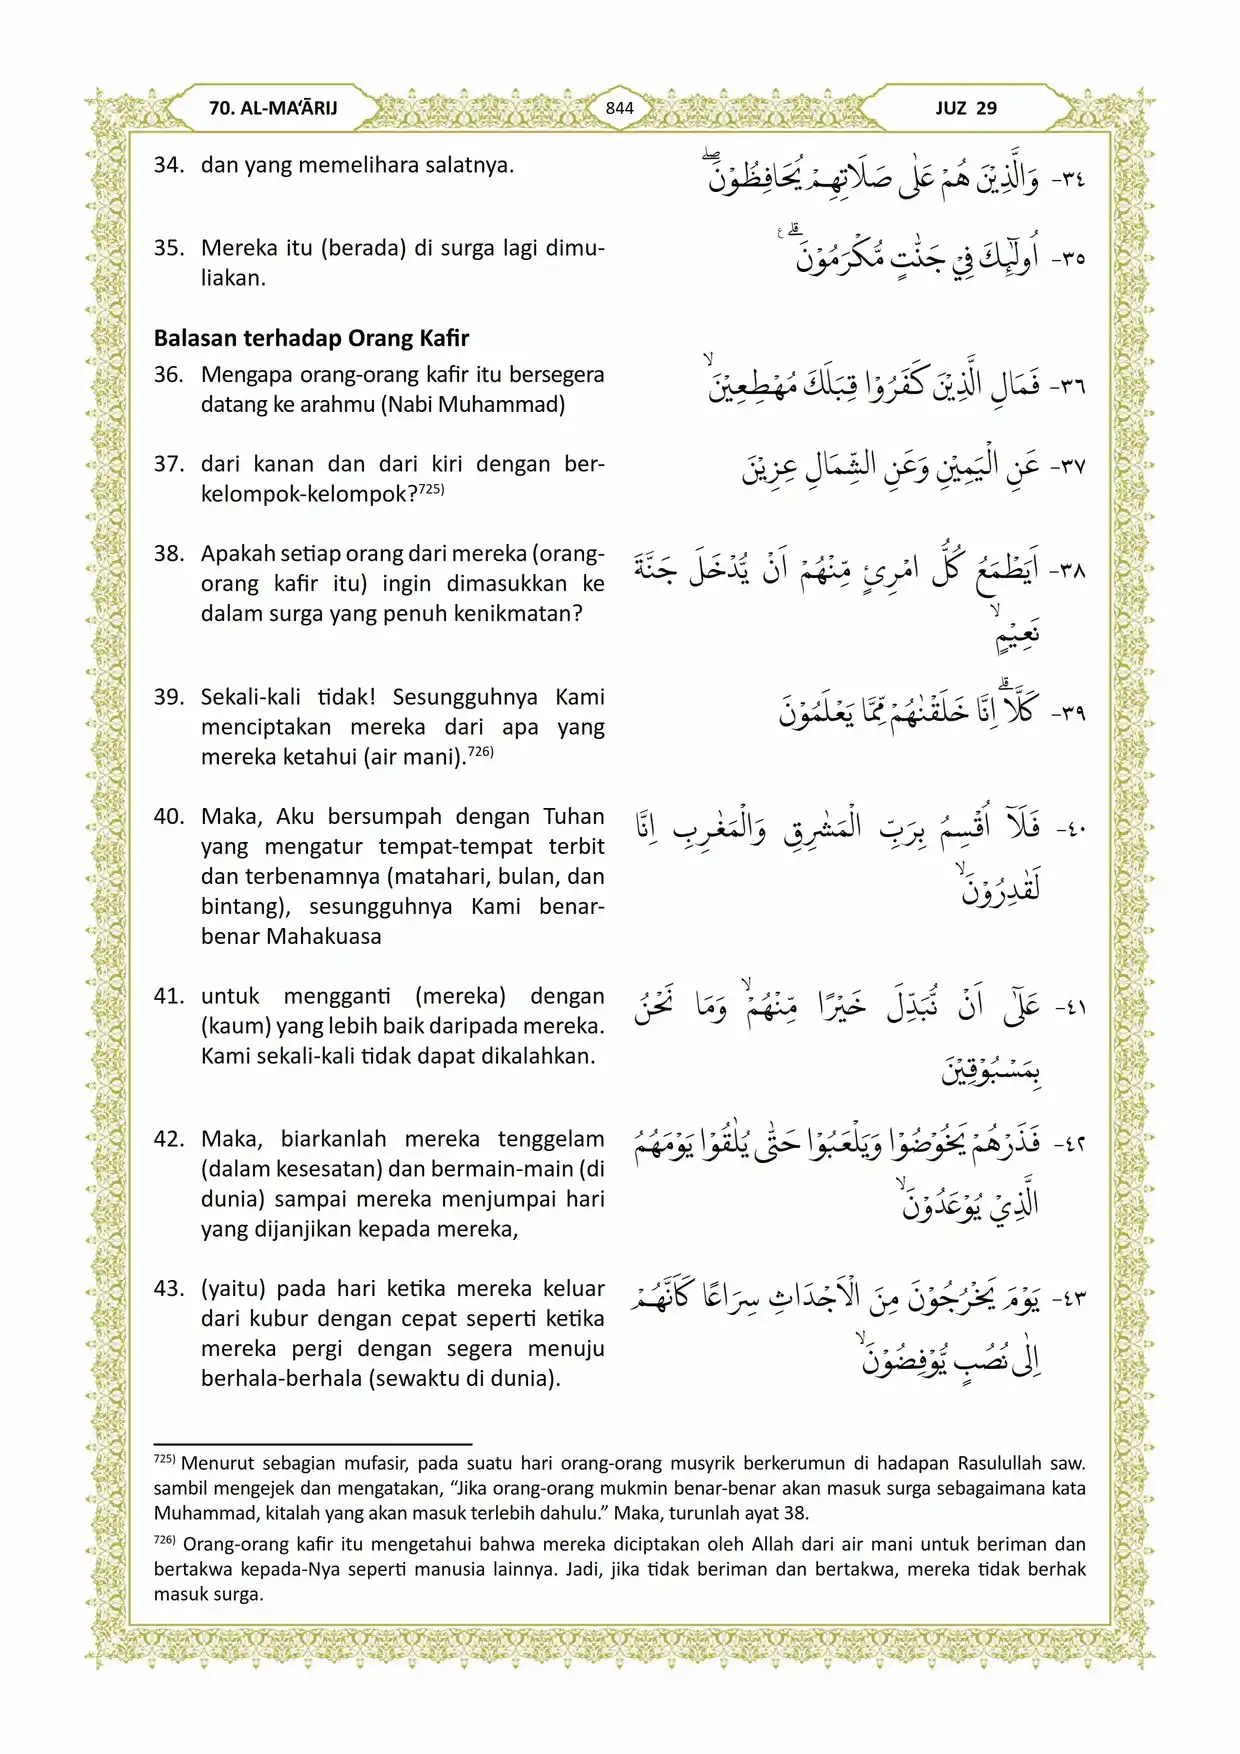 70. AL-MA‘ĀRIJ
844
JUZ 29
34. dan yang memelihara salatnya.
٣٤- وَالَّذِيْنَ هُمْ عَلٰى صَلَاتِهِمْ يُحَافِظُوْنَۖ
35. Mereka itu (berada) di surga lagi dimu-
liakan.
٣٥- اُولٰۤىِٕكَ فِيْ جَنّٰتٍ مُّكْرَمُوْنَ ۗ ࣖ
Balasan terhadap Orang Kafir
36. Mengapa orang-orang kafir itu bersegera
datang ke arahmu (Nabi Muhammad)
٣٦- فَمَالِ الَّذِيْنَ كَفَرُوْا قِبَلَكَ مُهْطِعِيْنَۙ
37. dari kanan dan dari kiri dengan ber-
kelompok-kelompok?725)
٣٧- عَنِ الْيَمِيْنِ وَعَنِ الشِّمَالِ عِزِيْنَ
38. Apakah setiap orang dari mereka (orang-
orang kafir itu) ingin dimasukkan ke
dalam surga yang penuh kenikmatan?
٣٨- اَيَطْمَعُ كُلُّ امْرِئٍ مِّنْهُمْ اَنْ يُّدْخَلَ جَنَّةَ
نَعِيْمٍۙ
39. Sekali-kali tidak! Sesungguhnya Kami
menciptakan mereka dari apa yang
mereka ketahui (air mani).726)
٣٩- كَلَّاۗ اِنَّا خَلَقْنٰهُمْ مِّمَّا يَعْلَمُوْنَ
40. Maka, Aku bersumpah dengan Tuhan
yang mengatur tempat-tempat terbit
dan terbenamnya (matahari, bulan, dan
bintang), sesungguhnya Kami benar-
benar Mahakuasa
٤٠- فَلَآ اُقْسِمُ بِرَبِّ الْمَشٰرِقِ وَالْمَغٰرِبِ اِنَّا
لَقٰدِرُوْنَۙ
41. untuk mengganti (mereka) dengan
(kaum) yang lebih baik daripada mereka.
Kami sekali-kali tidak dapat dikalahkan.
٤١- عَلٰٓى اَنْ نُّبَدِّلَ خَيْرًا مِّنْهُمْۙ وَمَا نَحْنُ
بِمَسْبُوْقِيْنَ
42. Maka, biarkanlah mereka tenggelam
(dalam kesesatan) dan bermain-main (di
dunia) sampai mereka menjumpai hari
yang dijanjikan kepada mereka,
٤٢- فَذَرْهُمْ يَخُوْضُوْا وَيَلْعَبُوْا حَتّٰى يُلٰقُوْا يَوْمَهُمُ
الَّذِيْ يُوْعَدُوْنَۙ
43. (yaitu) pada hari ketika mereka keluar
dari kubur dengan cepat seperti ketika
mereka pergi dengan segera menuju
berhala-berhala (sewaktu di dunia).
٤٣- يَوْمَ يَخْرُجُوْنَ مِنَ الْاَجْدَاثِ سِرَاعًا كَاَنَّهُمْ
اِلٰى نُصُبٍ يُّوْفِضُوْنَۙ
725) Menurut sebagian mufasir, pada suatu hari orang-orang musyrik berkerumun di hadapan Rasulullah saw.
sambil mengejek dan mengatakan, “Jika orang-orang mukmin benar-benar akan masuk surga sebagaimana kata
Muhammad, kitalah yang akan masuk terlebih dahulu.” Maka, turunlah ayat 38.
726) Orang-orang kafir itu mengetahui bahwa mereka diciptakan oleh Allah dari air mani untuk beriman dan
bertakwa kepada-Nya seperti manusia lainnya. Jadi, jika tidak beriman dan bertakwa, mereka tidak berhak
masuk surga.